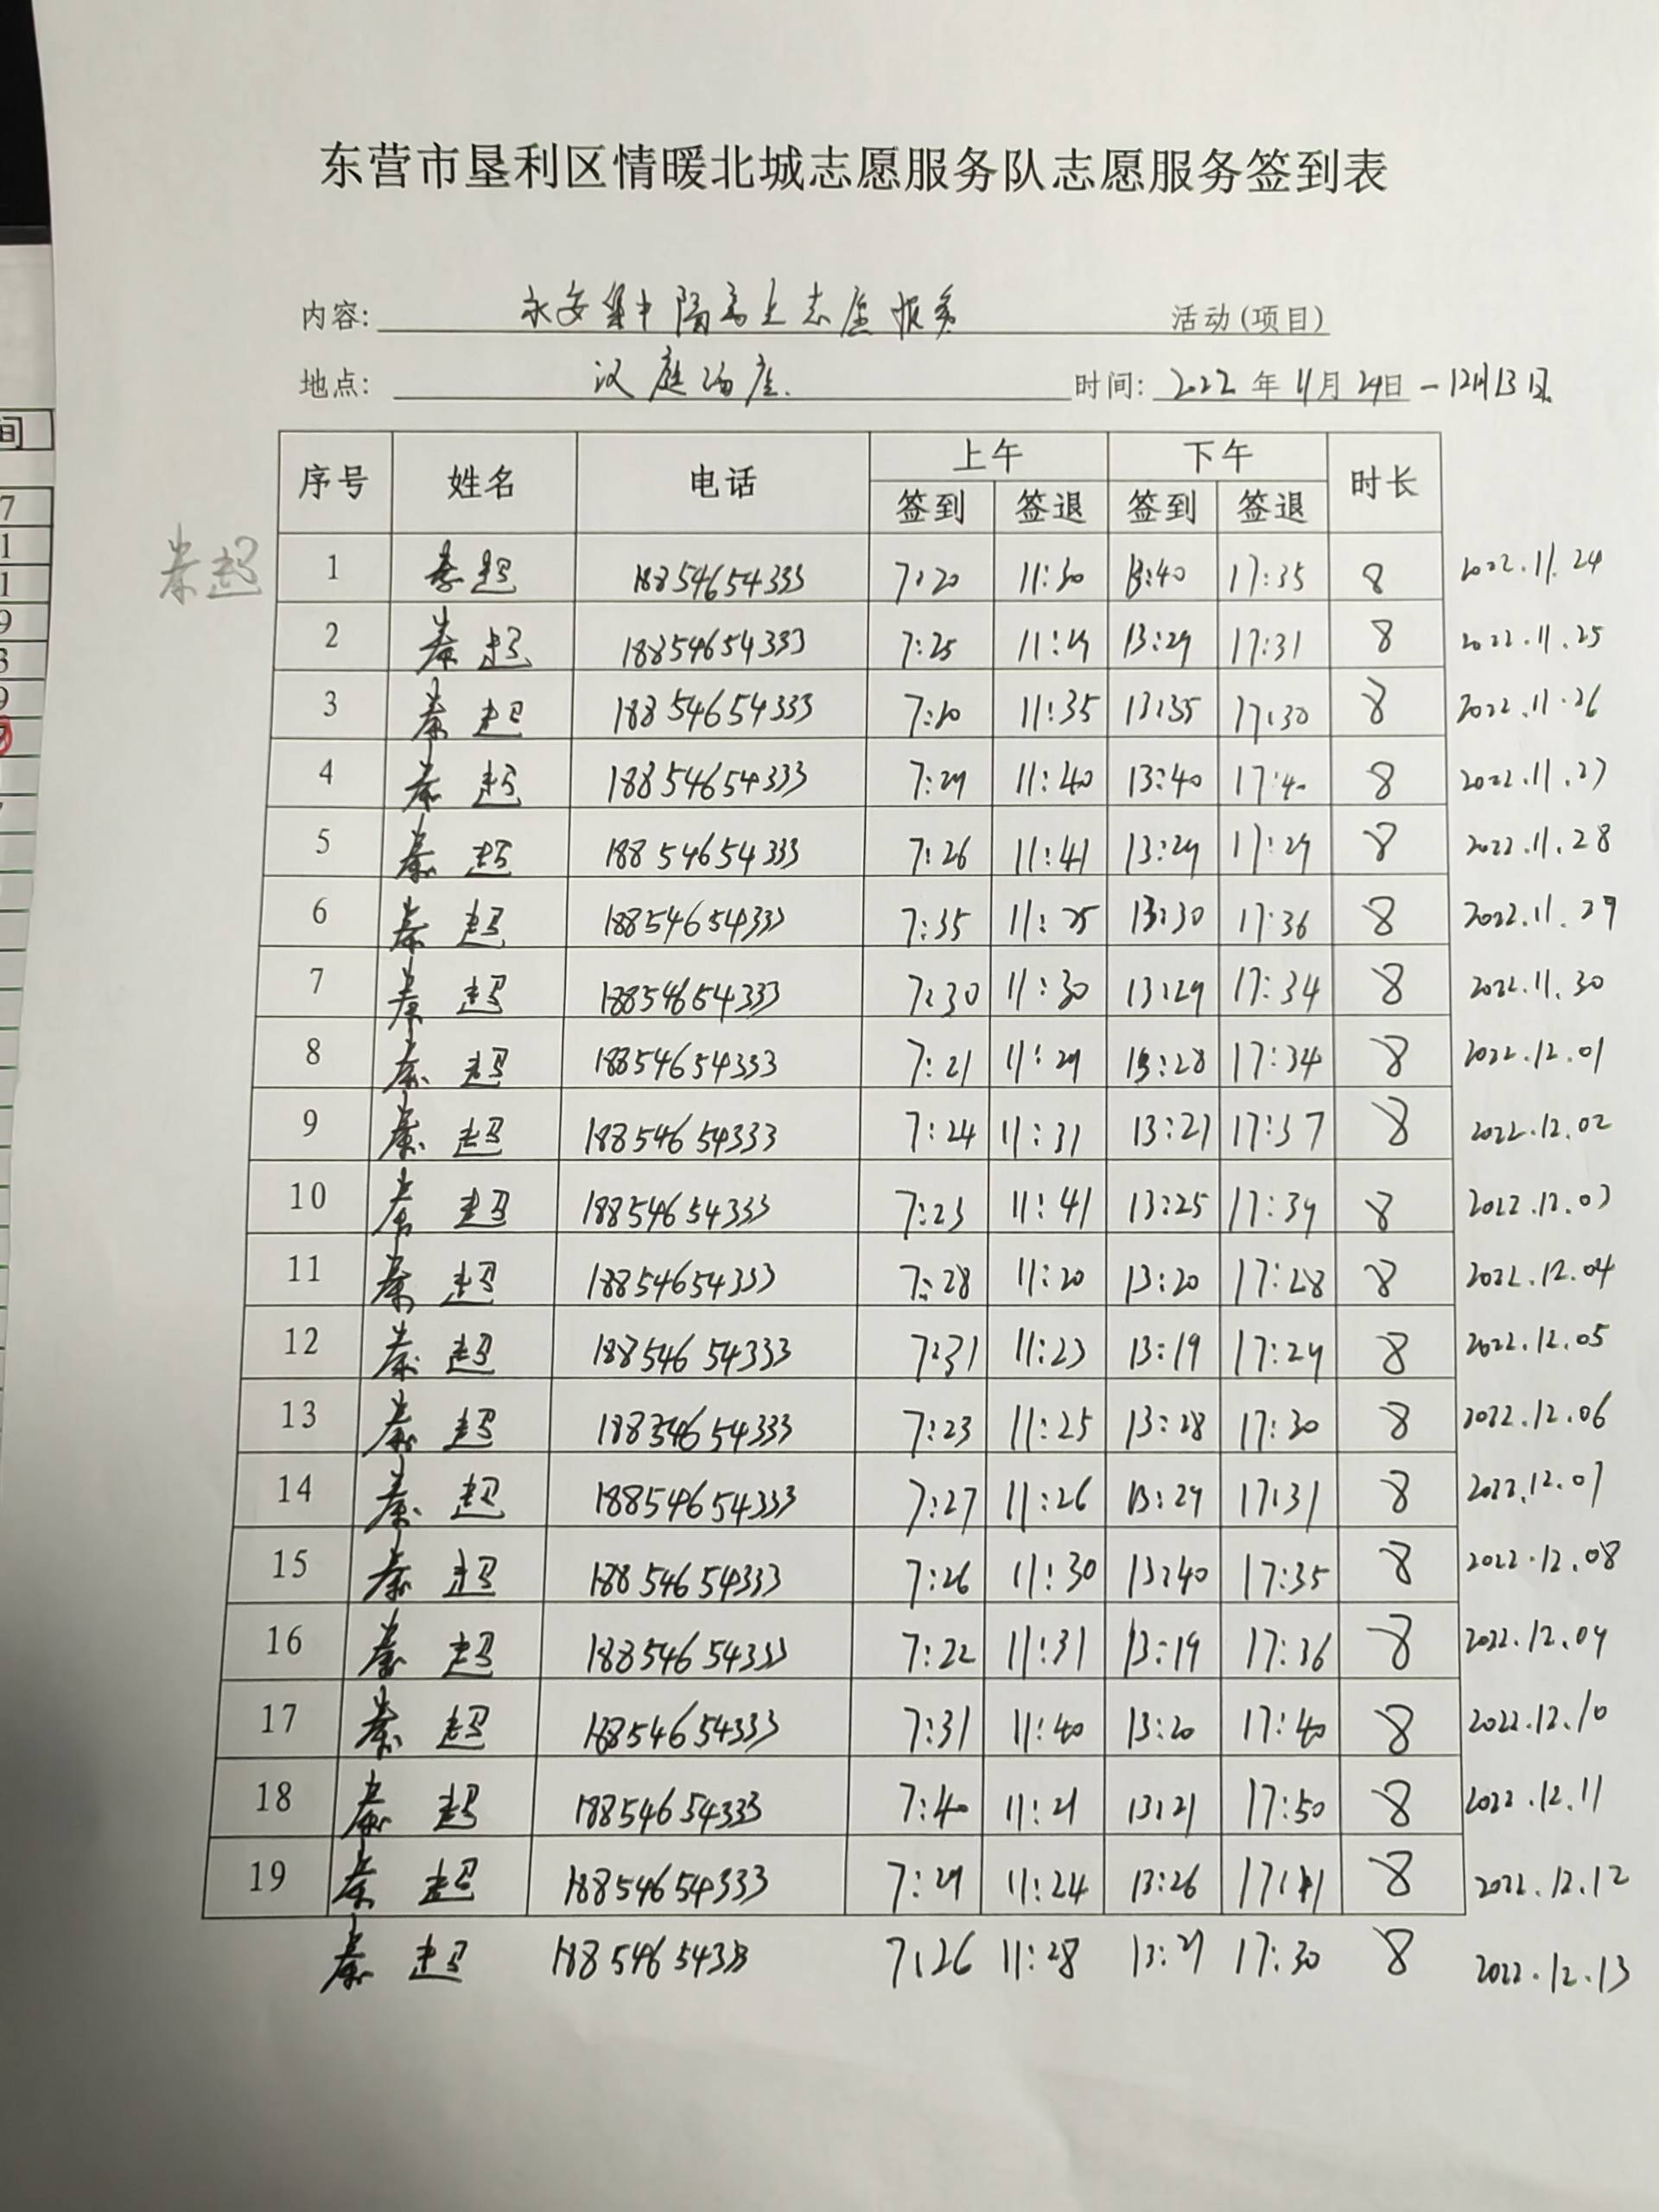 东营市垦利区情暖北城志愿服务队志愿服务签到表
内容: 永安集中隔离点志愿服务 活动(项目)
地点: 汉庭酒店. 时间: 2022年11月24日-12月13日
序号 姓名 电话 上午 下午 时长
签到 签退 签到 签退
秦超
1 秦超 18854654333 7:20 11:30 13:40 17:35 8 2022.11.24
2 秦超 18854654333 7:25 11:29 13:29 17:31 8 2022.11.25
3 秦超 18854654333 7:20 11:35 13:35 17:30 8 2022.11.26
4 秦超 18854654333 7:29 11:40 13:40 17:40 8 2022.11.27
5 秦超 18854654333 7:26 11:41 13:29 17:29 8 2022.11.28
6 秦超 18854654333 7:35 11:25 13:30 17:36 8 2022.11.29
7 秦超 18854654333 7:30 11:30 13:29 17:34 8 2022.11.30
8 秦超 18854654333 7:21 11:29 13:28 17:34 8 2022.12.01
9 秦超 18854654333 7:24 11:31 13:27 17:37 8 2022.12.02
10 秦超 18854654333 7:23 11:41 13:25 17:39 8 2022.12.03
11 秦超 18854654333 7:28 11:20 13:20 17:28 8 2022.12.04
12 秦超 18854654333 7:31 11:23 13:19 17:29 8 2022.12.05
13 秦超 18854654333 7:23 11:25 13:28 17:30 8 2022.12.06
14 秦超 18854654333 7:27 11:26 13:29 17:31 8 2022.12.07
15 秦超 18854654333 7:26 11:30 13:40 17:35 8 2022.12.08
16 秦超 18854654333 7:22 11:31 13:19 17:36 8 2022.12.09
17 秦超 18854654333 7:31 11:40 13:20 17:40 8 2022.12.10
18 秦超 18854654333 7:40 11:21 13:21 17:50 8 2022.12.11
19 秦超 18854654333 7:29 11:24 13:26 8 2022.12.12
秦超 18854654333 7:26 11:28 13:27 17:30 8 2022.12.13